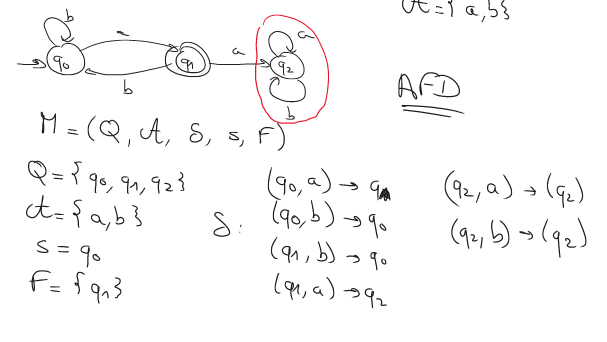 A = {a,b}
b
a
a
a
q0
q1
q2
b
b
AFD
M = (Q, A, δ, s, F)
Q = {q0, q1, q2}
A = {a,b}
s = q0
F = {q1}
δ:
(q0, a) → q1
(q0, b) → q0
(q1, b) → q0
(q1, a) → q2
(q2, a) → (q2)
(q2, b) → (q2)